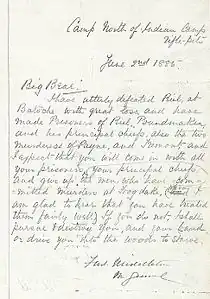 Camp North of Indian Camp
Rifle-Pits
June 2nd 1885
Big Bear:
I have utterly defeated Riel, at
Batoche with great loss and have
made Prisoners of Riel, Poundmaker
and his principal chiefs, also the two
murderers of Payne, and Fremont and
I expect that you will come in with all
your prisoners, your principal chiefs
and give up the men who have com-
mitted murders at Frog Lake, I
am glad to hear that you have treated
them fairly well. If you do not I shall
pursue & destroy you, and your band
or drive you into the woods to starve.
Fred Middleton
M. General